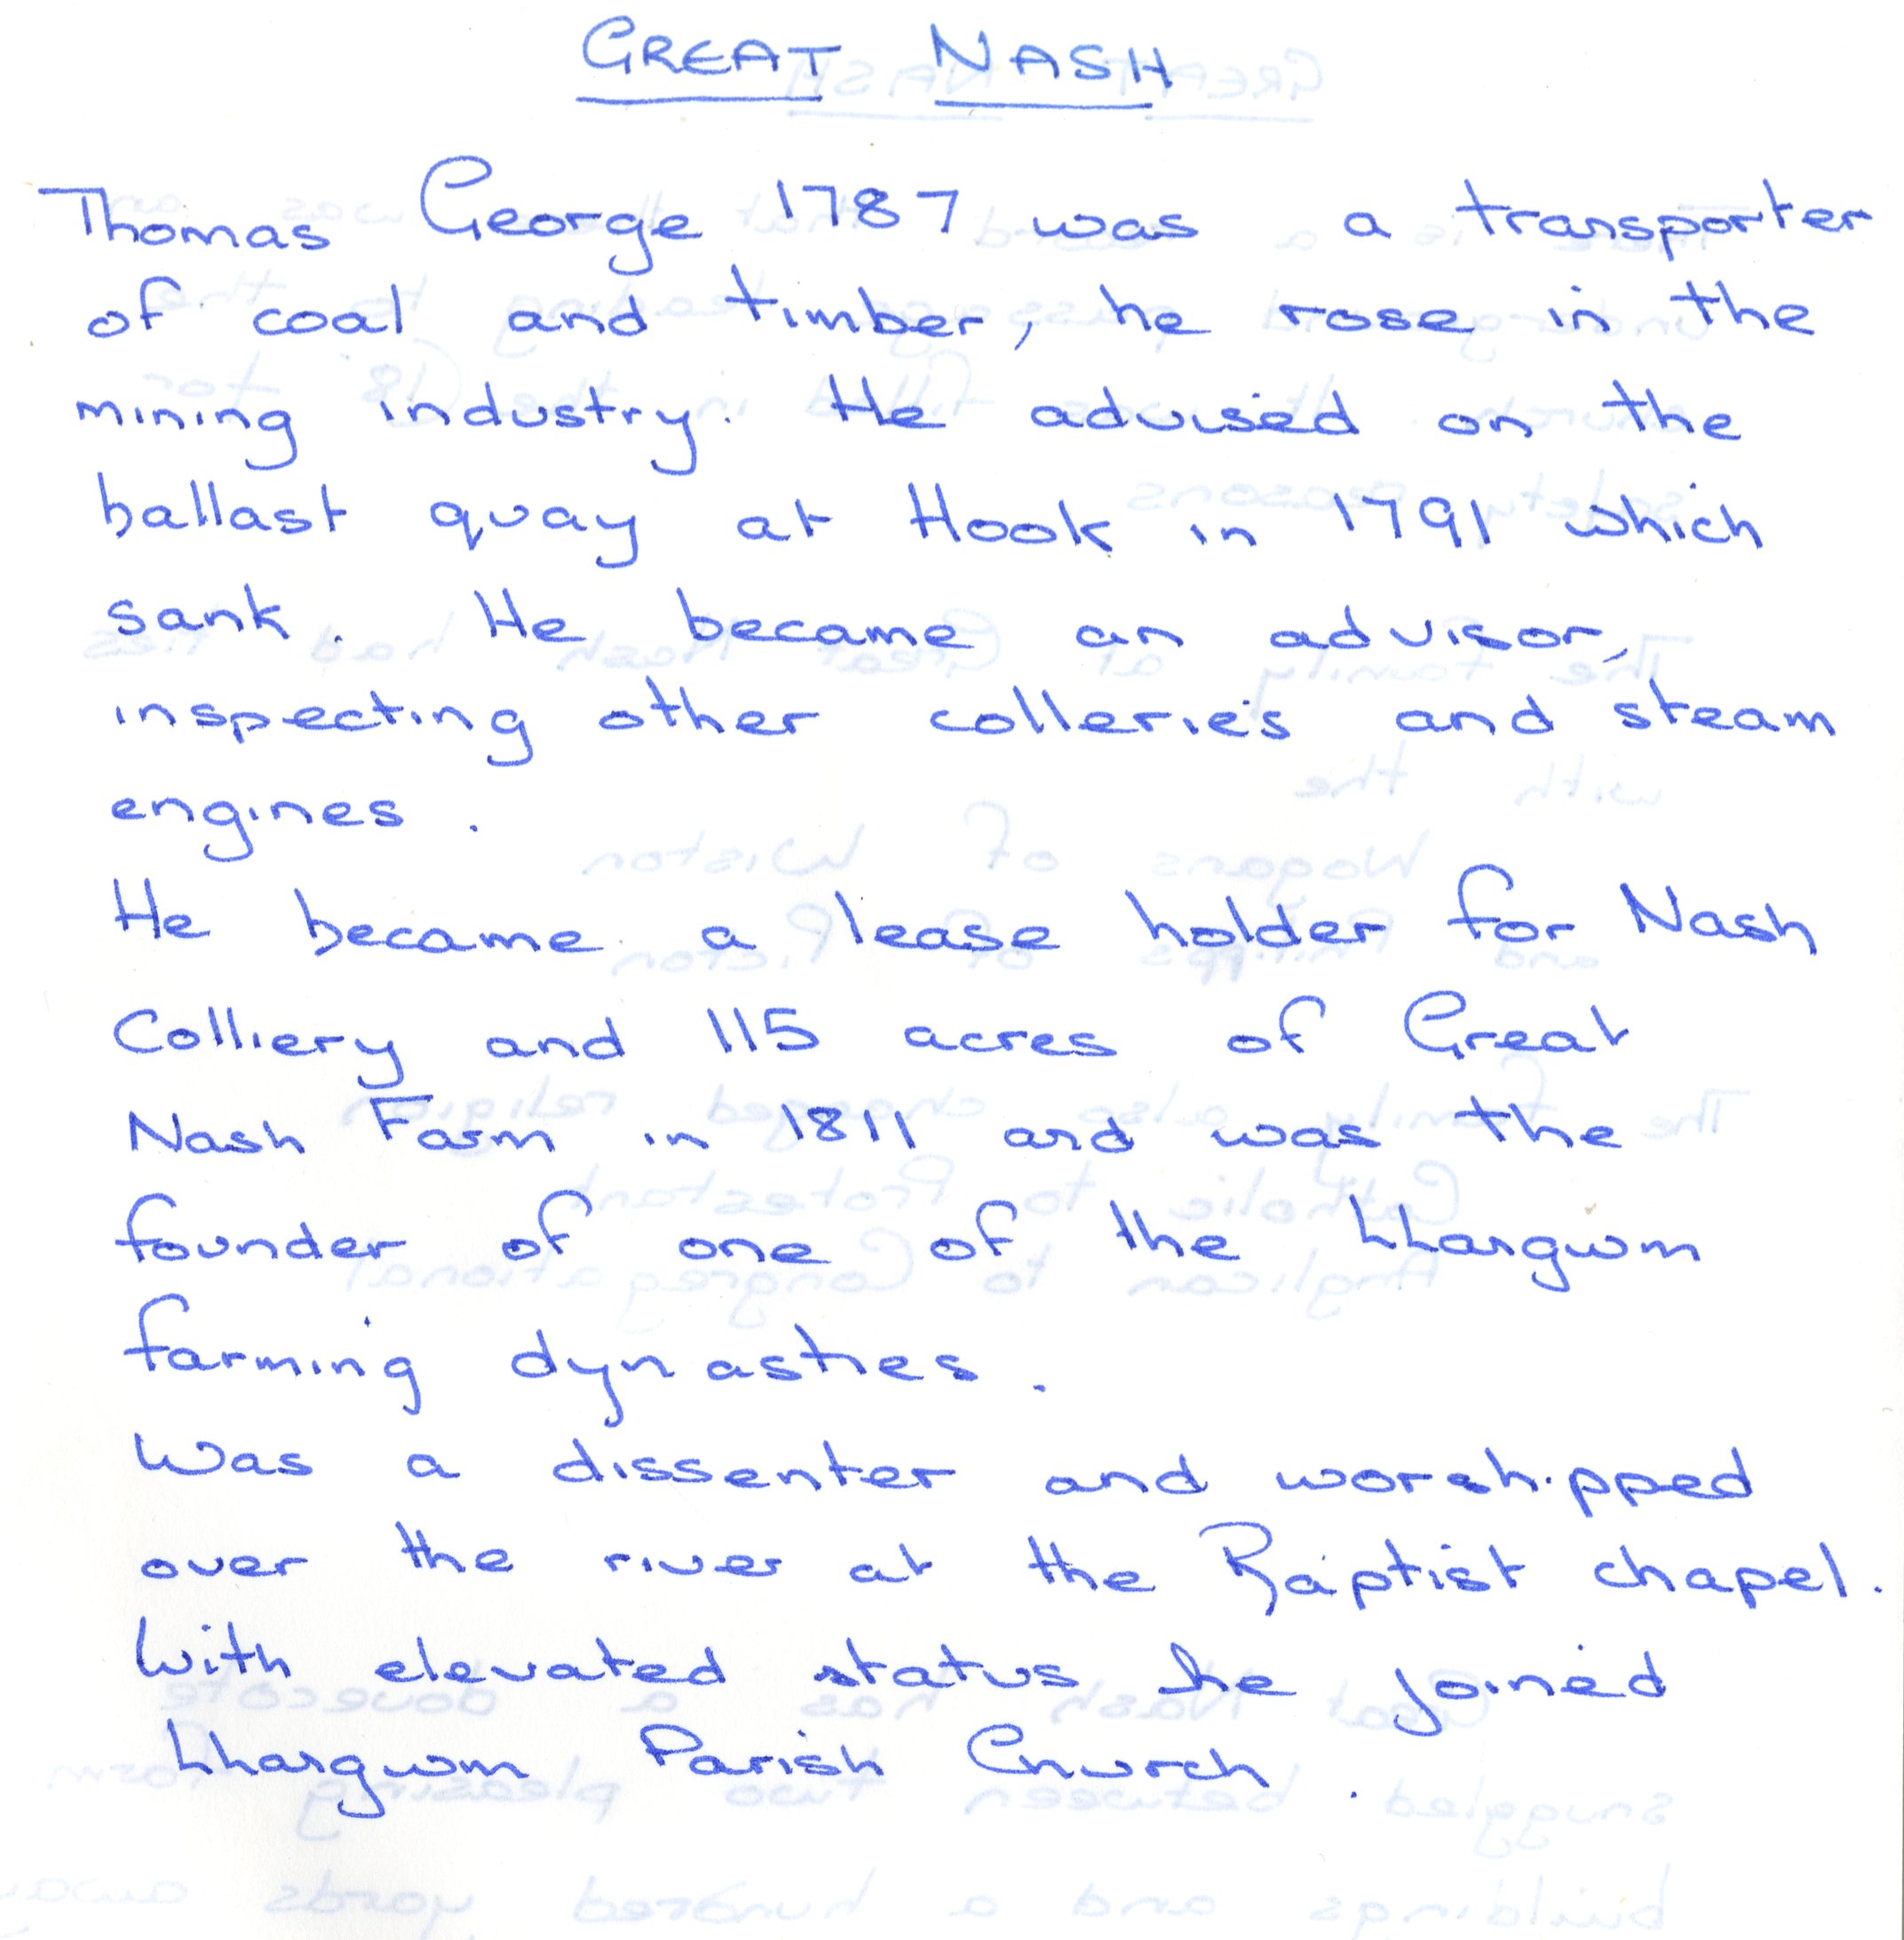 GREAT NASH
Thomas George 1787 was a transporter
of coal and timber, he rose in the
mining industry. He advised on the
ballast quay at Hook in 1791 which
sank. He became an advisor,
inspecting other colleries and steam
engines.
He became a lease holder for Nash
Colliery and 115 acres of Great
Nash Farm in 1811 and was the
founder of one of the Llangwm
farming dynasties.
Was a dissenter and worshipped
over the river at the Baptist chapel.
With elevated status he joined
Llangwm Parish Church.